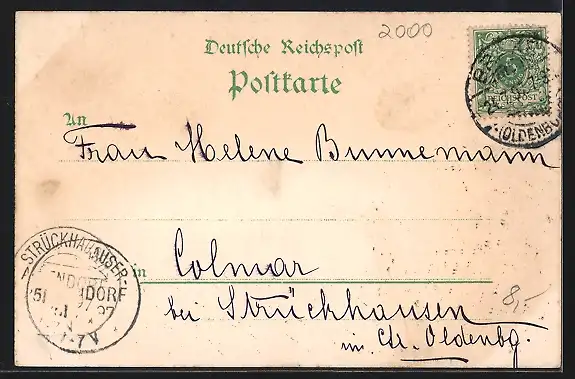 2000
Deutsche Reichspost
Postkarte
An
Frau Helene Bunnemann
in Colmar
bei Strückhausen
im Gr. Oldenbg.
8,-
REICHSPOST
(OLDENBURG
STRÜCKHAUSER-
NDORF
7-7V